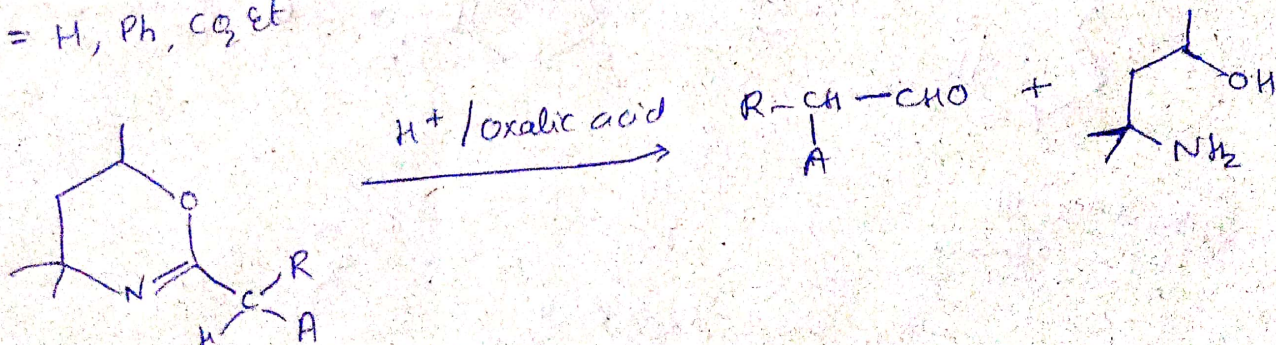 = H, Ph, CO2Et
H+ / oxalic acid
R-CH-CHO + OH
A
NH2
O
N
R
C
H A